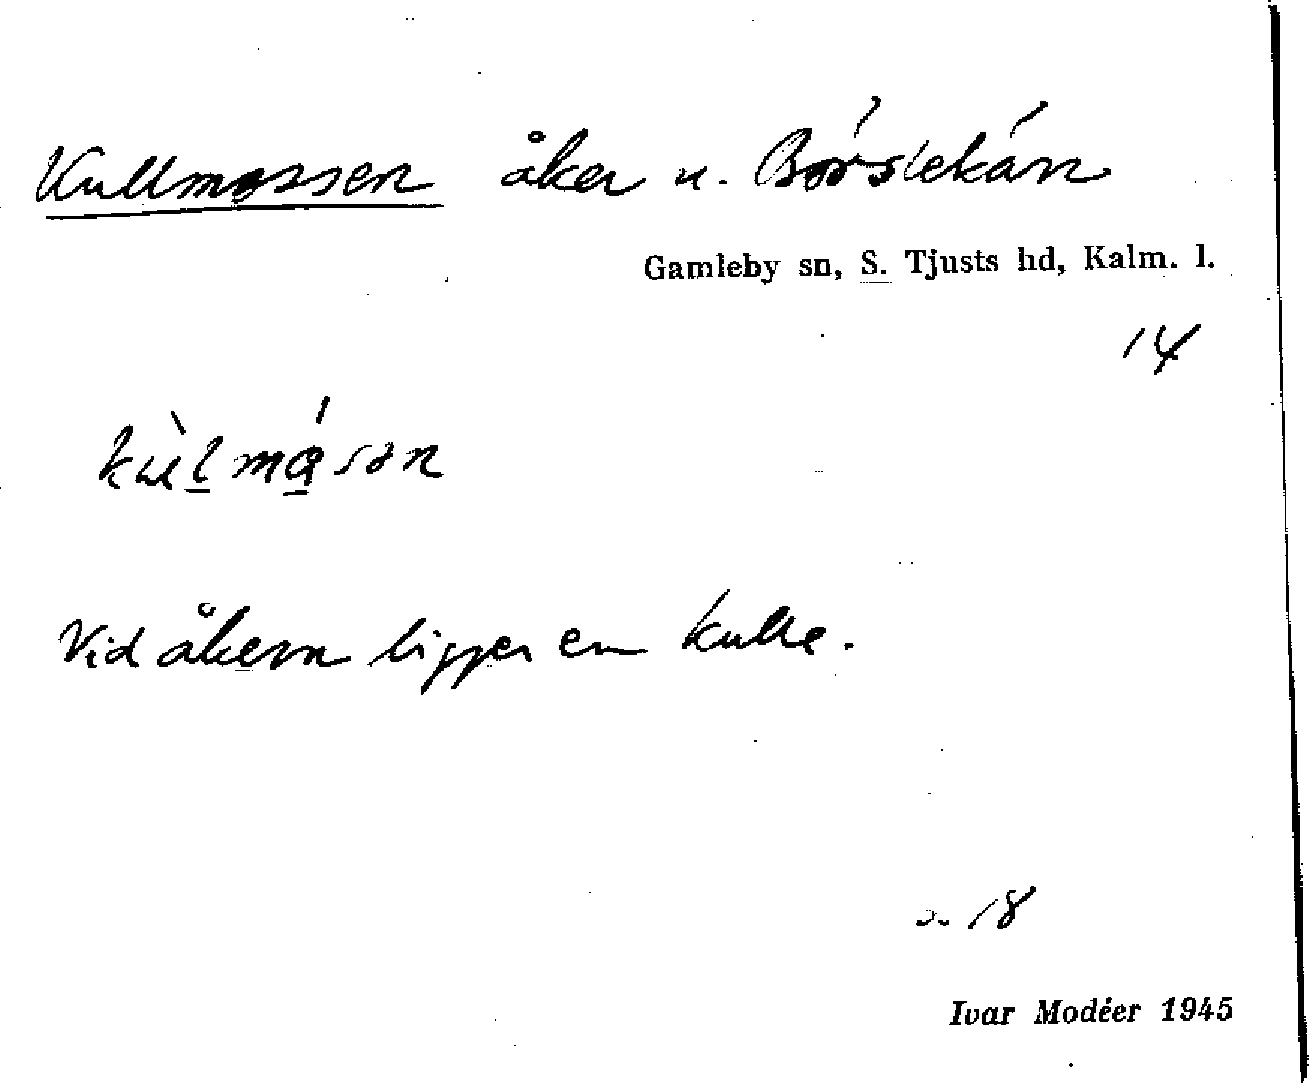 Kullmossen åker u. Börslekärr
Gamleby sn, S. Tjusts hd, Kalm. l.
14
kùlmásən
Vid åkern ligger en kulle.
18
Ivar Modéer 1945